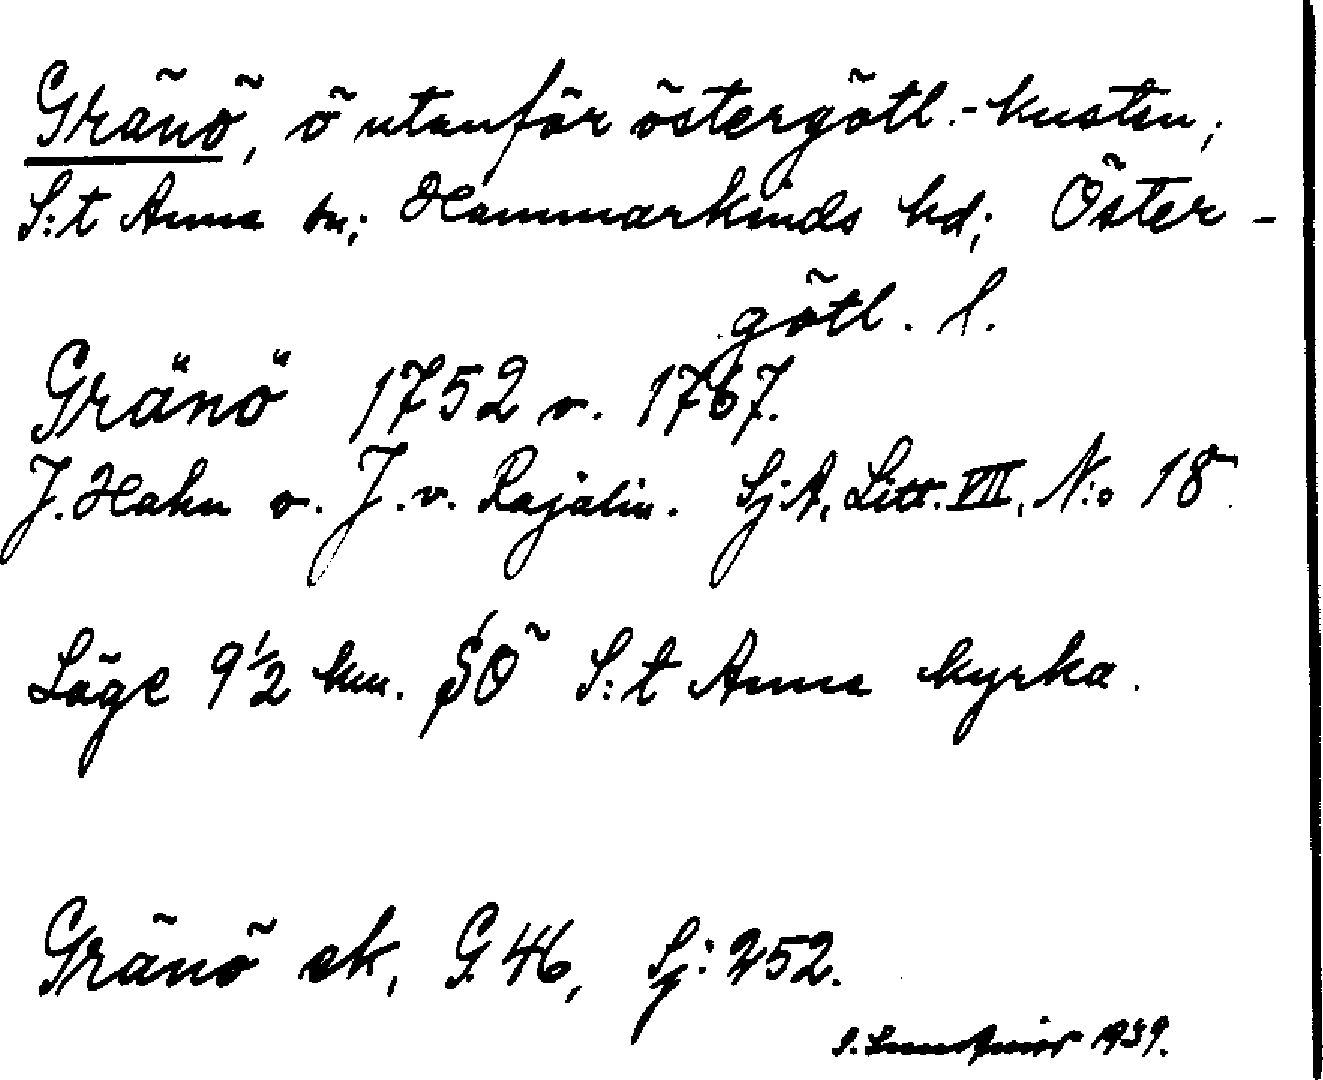 Gränö, ö utanför östergötl.-kusten;
S:t Anna sn; Hammarkinds hd; Öster-
götl. l.
Gränö 1752 o. 1767.
J. Hahn o. J. v. Rajalin. Sj.A. Litt. VIII, N:o 18.
Läge 9 1/2 km. SÖ S:t Anna kyrka.
Gränö ek, G. 46, Sj: 252.
1939.